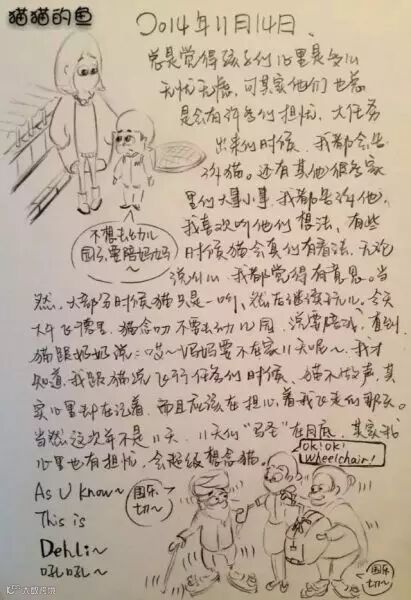 猫猫的鱼
2014年11月14日
总是觉得孩子们心里是多么
无忧无虑,可其实他们也总
是会有许多的担忧,大任务
出来的时候,我都会告
诉猫。还有其他很多家
里的大事小事,我都告诉他,
我喜欢听他们想法,有些
时候猫会真的有看法,无论
说什么,我都觉得有意思。当
不想去幼儿
园了,要陪妈妈~
然,大部分时候猫只是一听,然后继续玩儿,今天
大午飞德里,猫念叨不要去幼儿园,说要陪我,直到
猫跟奶奶说:哎~妈妈要不在家11天呢~,我才
知道,我跟猫说飞行任务的时候,猫不做声,其
实心里却在记着,而且应该在担心着我飞走的那天。
当然这次并不是11天,11天的"马圣"在月底,其实我
心里也有担忧,会超级想念猫。
OK!OK!
wheelchair!
As U know~
This is
Dehli~
吼吼~
国乐
一切~
国乐
一切~
大啟跨境